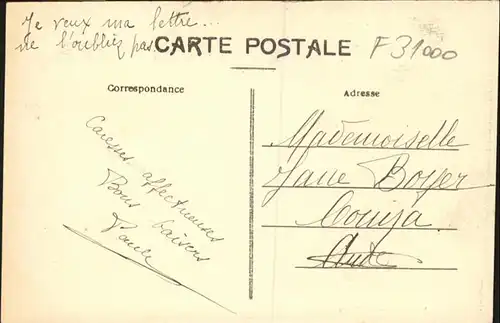 Je veux ma lettre...
ne l'oubliez pas
CARTE POSTALE
F31000
Correspondance
Adresse
Caresses affectueuses
Bons baisers
Mademoiselle
Jane Boyer
Couiza
Aude